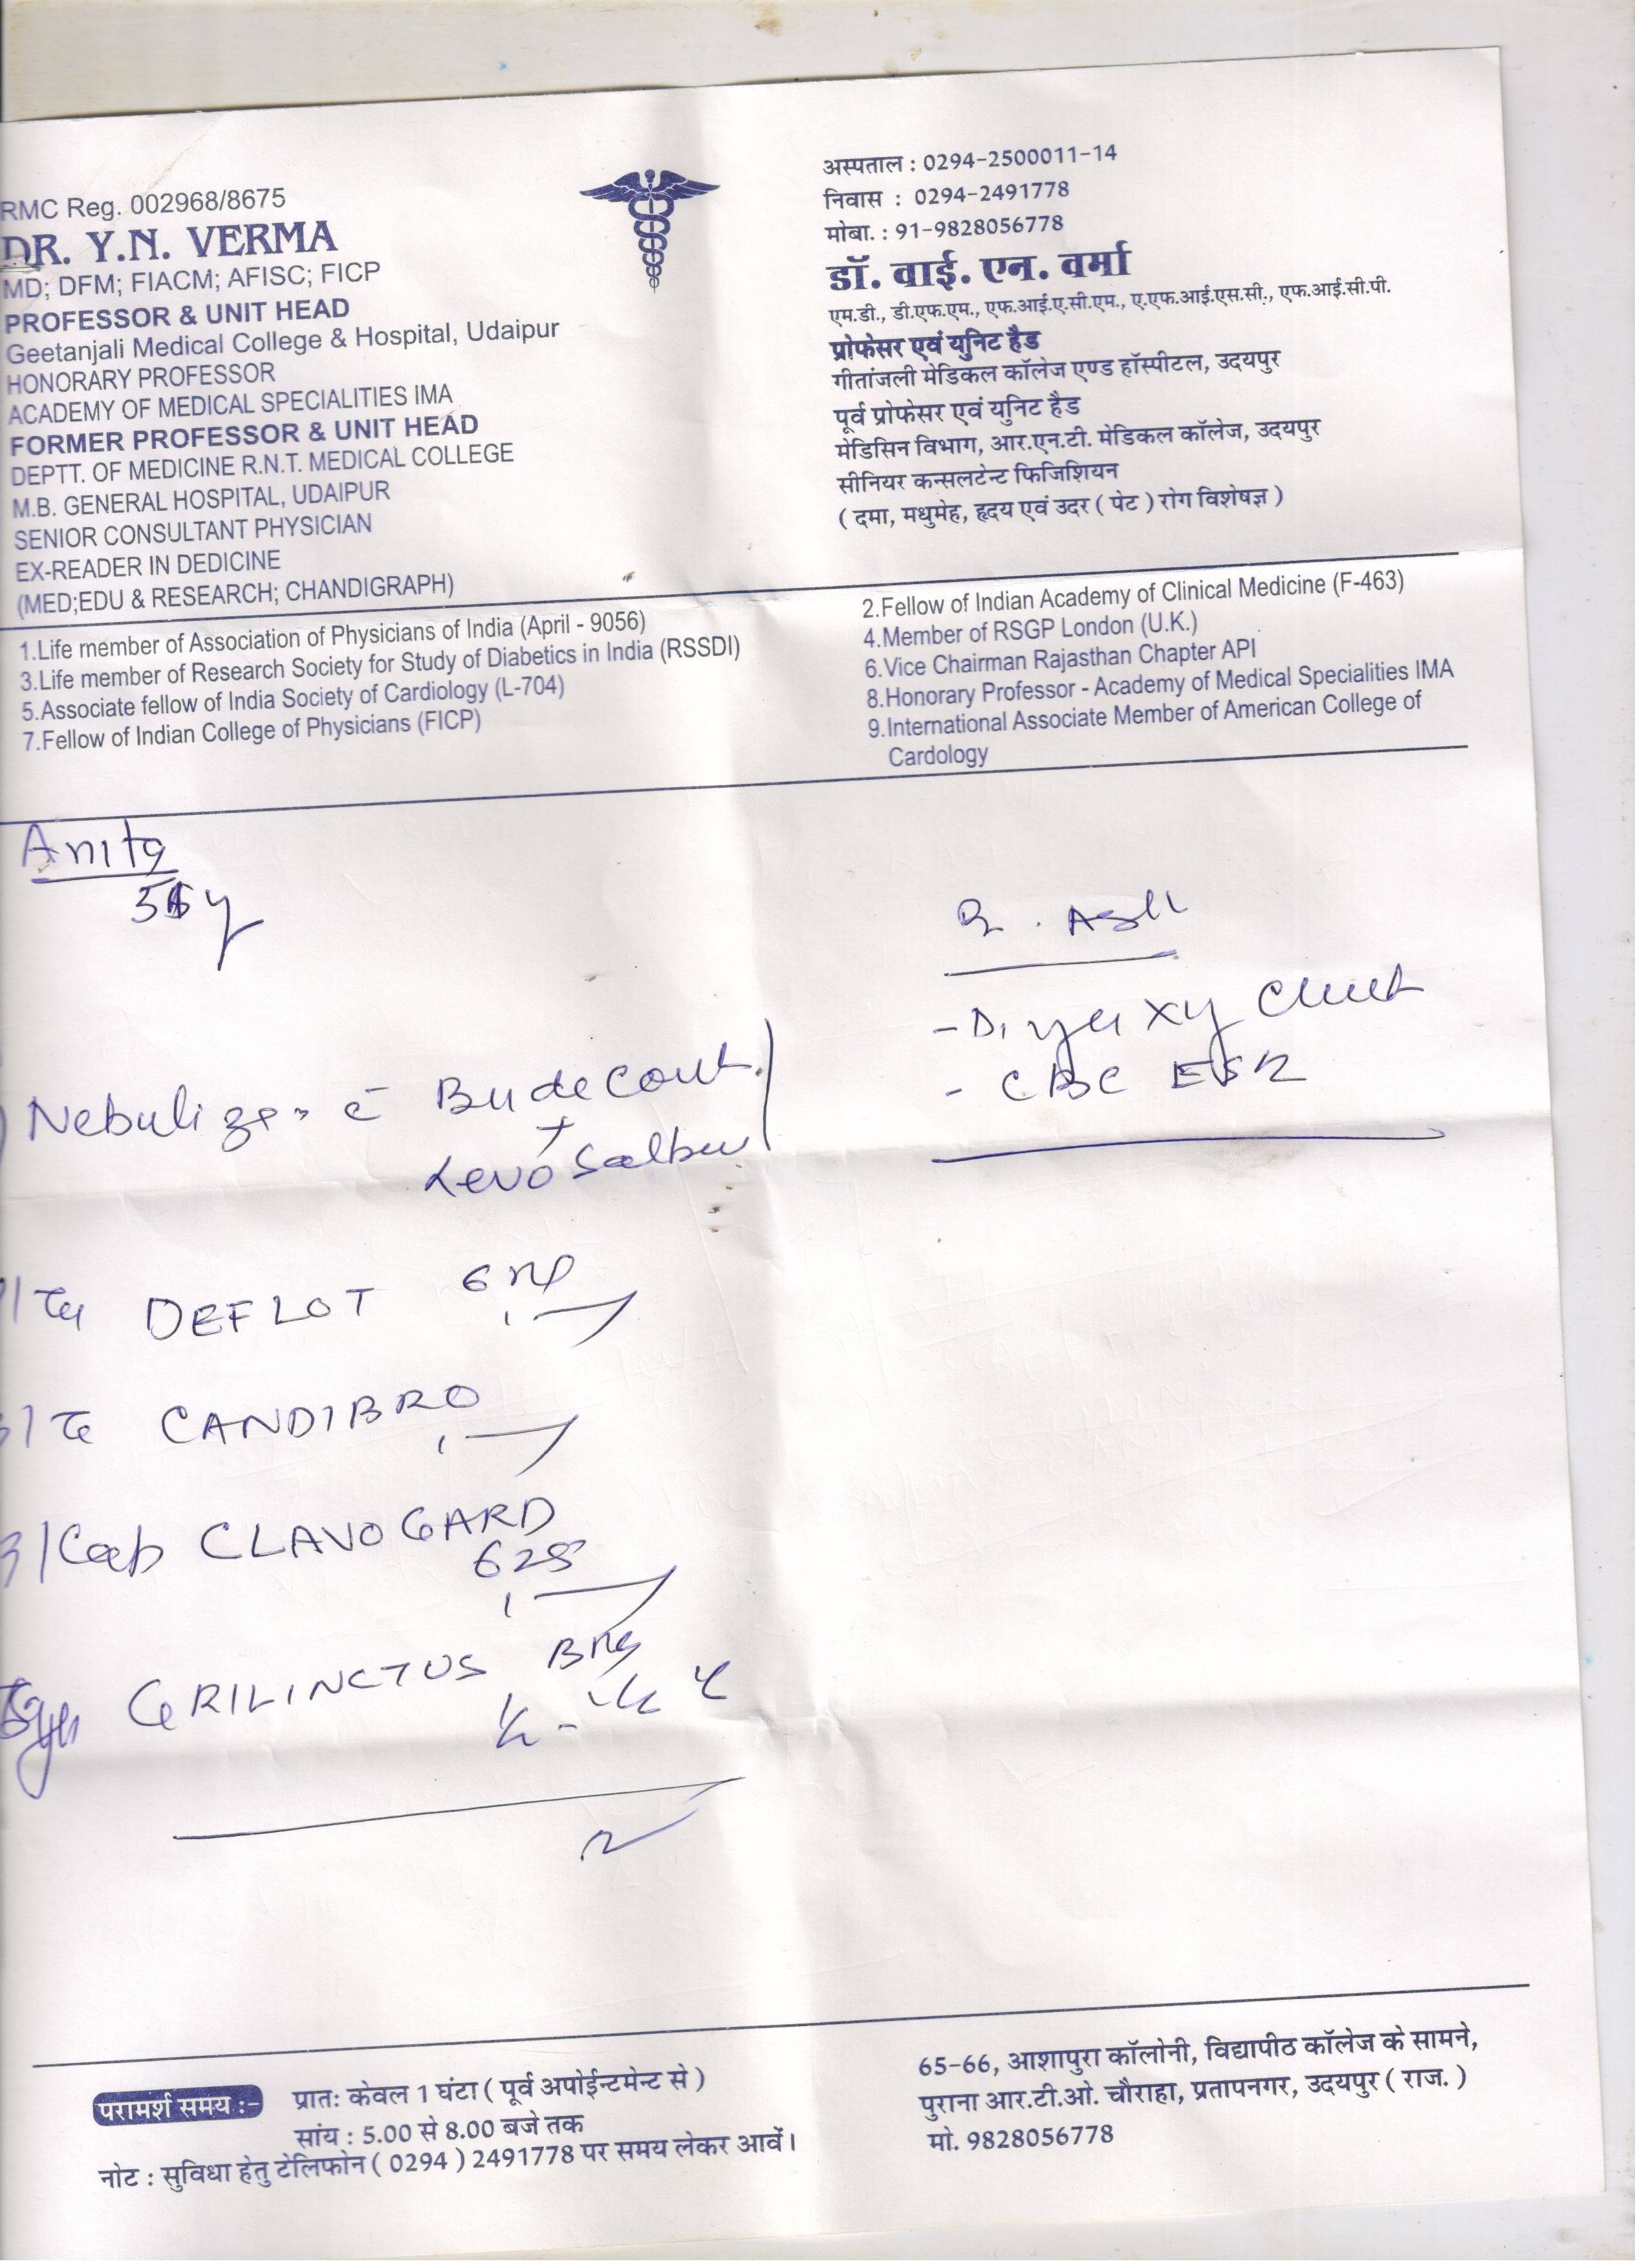 RMC Reg. 002968/8675
DR. Y.N. VERMA
MD; DFM; FIACM; AFISC; FICP
PROFESSOR & UNIT HEAD
Geetanjali Medical College & Hospital, Udaipur
HONORARY PROFESSOR
ACADEMY OF MEDICAL SPECIALITIES IMA
FORMER PROFESSOR & UNIT HEAD
DEPTT. OF MEDICINE R.N.T. MEDICAL COLLEGE
M.B. GENERAL HOSPITAL, UDAIPUR
SENIOR CONSULTANT PHYSICIAN
EX-READER IN DEDICINE
(MED;EDU & RESEARCH; CHANDIGRAPH)
अस्पताल : 0294-2500011-14
निवास : 0294-2491778
मोबा. : 91-9828056778
डॉ. वाई. एन. वर्मा
एम.डी., डी.एफ.एम., एफ.आई.ए.सी.एम., ए.एफ.आई.एस.सी., एफ.आई.सी.पी.
प्रोफेसर एवं युनिट हैड
गीतांजली मेडिकल कॉलेज एण्ड हॉस्पीटल, उदयपुर
पूर्व प्रोफेसर एवं युनिट हैड
मेडिसिन विभाग, आर.एन.टी. मेडिकल कॉलेज, उदयपुर
सीनियर कन्सलटेन्ट फिजिशियन
( दमा, मधुमेह, हृदय एवं उदर ( पेट ) रोग विशेषज्ञ )
1.Life member of Association of Physicians of India (April - 9056)
3.Life member of Research Society for Study of Diabetics in India (RSSDI)
5.Associate fellow of India Society of Cardiology (L-704)
7.Fellow of Indian College of Physicians (FICP)
2.Fellow of Indian Academy of Clinical Medicine (F-463)
4.Member of RSGP London (U.K.)
6.Vice Chairman Rajasthan Chapter API
8.Honorary Professor - Academy of Medical Specialities IMA
9.International Associate Member of American College of
Cardology
Anita
- CBC ESR
Nebulizer c̄ Budecort
+
Levosalbu
DEFLOT 6
CANDIBRO
3/ Cap CLAVOGARD
625
GRILINCTUS
परामर्श समय :-
प्रातः केवल 1 घंटा ( पूर्व अपोईन्टमेन्ट से )
सांय : 5.00 से 8.00 बजे तक
नोट : सुविधा हेतु टेलिफोन ( 0294 ) 2491778 पर समय लेकर आवें।
65-66, आशापुरा कॉलोनी, विद्यापीठ कॉलेज के सामने,
पुराना आर.टी.ओ. चौराहा, प्रतापनगर, उदयपुर ( राज. )
मो. 9828056778